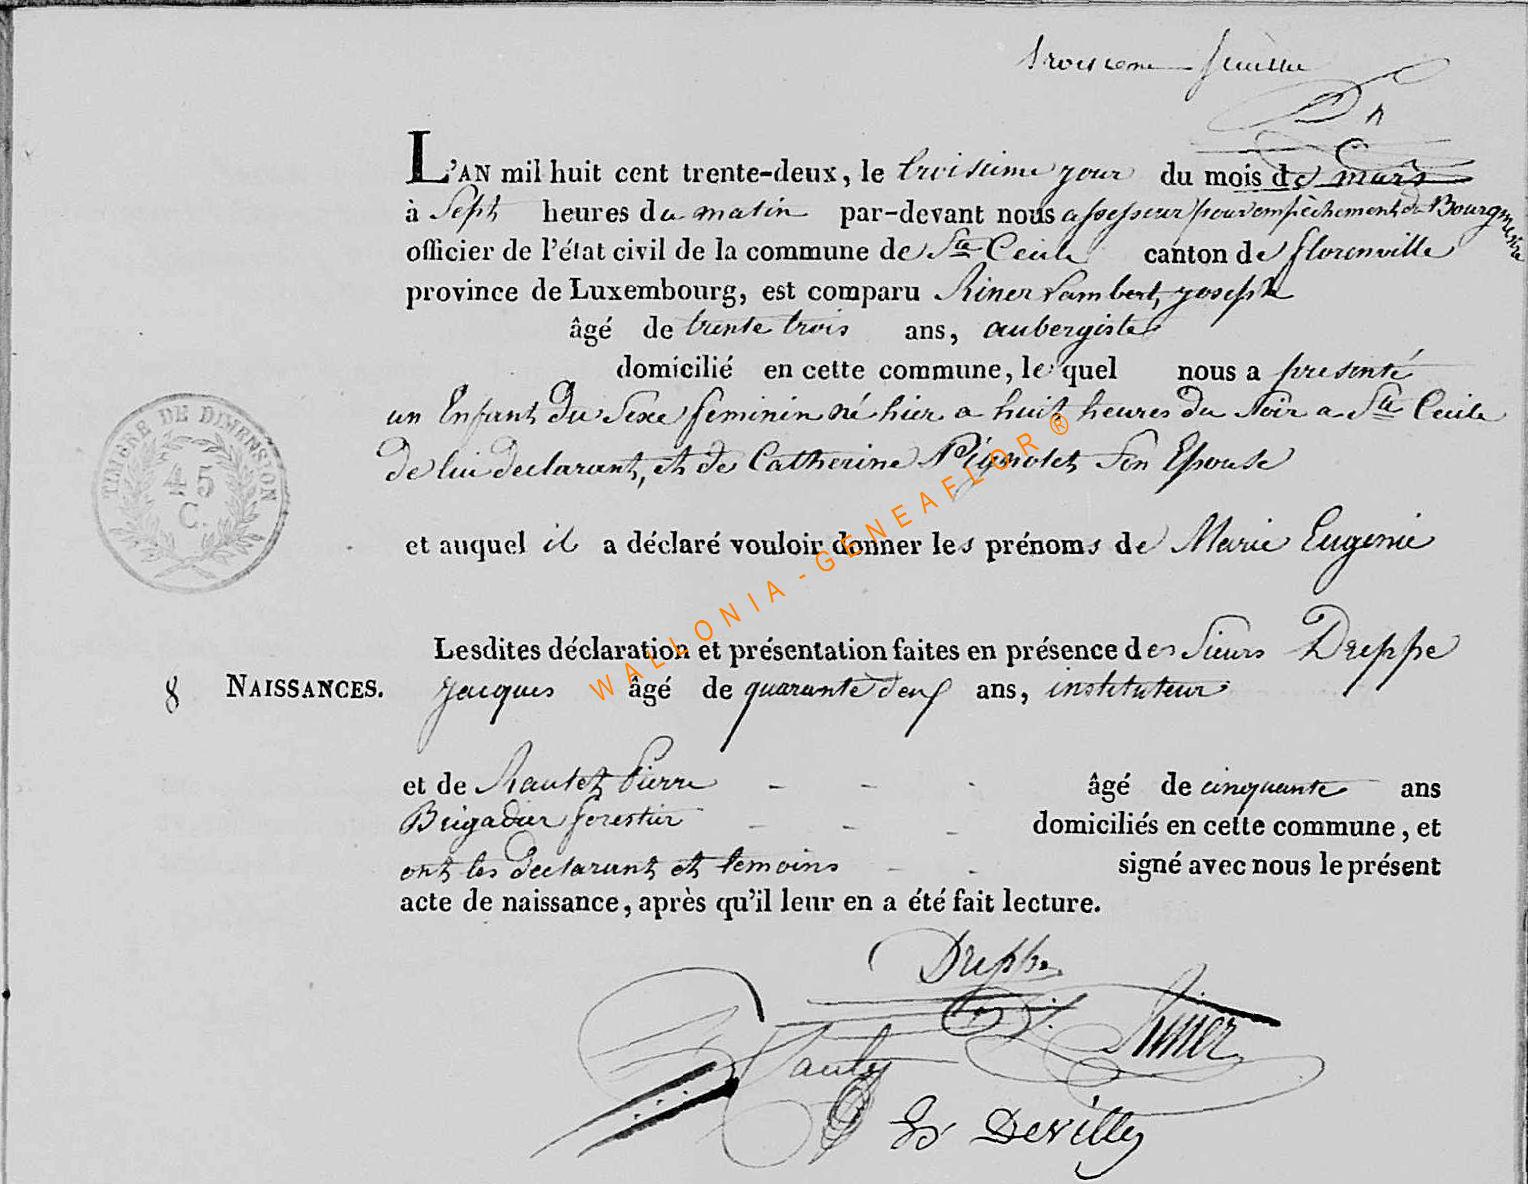 troisieme feuille
L'AN mil huit cent trente-deux, le troisieme jour du mois de mars
à Sept heures du matin par-devant nous assesseur pour empêchement du Bourgmestre
officier de l'état civil de la commune de Ste Cecile canton de florenville
province de Luxembourg, est comparu Riner Lambert, joseph
âgé de trente trois ans, aubergiste
domicilié en cette commune, le quel nous a presenté
un Enfant du Sexe feminin né hier a huit heures du Soir a Ste Cecile
de lui declarant, et de Catherine Pignolet Son Epouse
et auquel il a déclaré vouloir donner les prénoms de Marie Eugenie
Lesdites déclaration et présentation faites en présence des Sieurs Dreppe
8 NAISSANCES. jacques âgé de quarante deux ans, instituteur
et de Hautet Pierre - - - âgé de cinquante ans
Brigadier forestier - - - domiciliés en cette commune, et
ont les declarant et temoins - - signé avec nous le présent
acte de naissance, après qu'il leur en a été fait lecture.
Dreppe
Riner
Devilly
TIMBRE DE DIMENSION
45
C.
WALLONIA-GENEAFLOR®